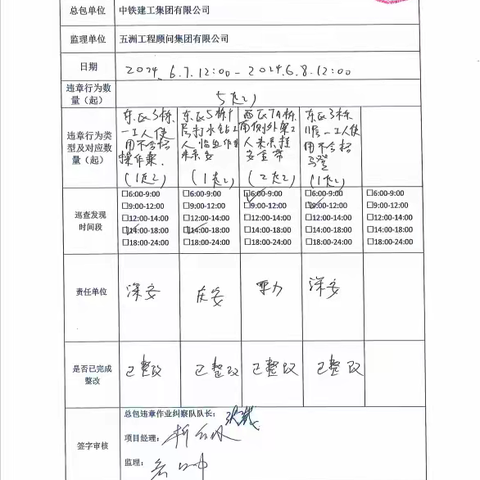 总包单位 中铁建工集团有限公司
监理单位 五洲工程顾问集团有限公司
日期 2024.6.7.12:00-2024.6.8.12:00
违章行为数量(起) 5起
违章行为类型及对应数量(起)
东区3栋一工人使用不合格操作凳.(1起)
东区5栋
(1起)
西区7A栋
2人未系挂安全带(2起)
东区3栋
一工人使用不合格马凳(1起)
巡查发现时间段
□6:00-9:00 □6:00-9:00 □6:00-9:00 □6:00-9:00 □6:00-9:00
□9:00-12:00 □9:00-12:00 □9:00-12:00 □9:00-12:00 □9:00-12:00
□12:00-14:00 □12:00-14:00 □12:00-14:00 □12:00-14:00 □12:00-14:00
□14:00-18:00 □14:00-18:00 □14:00-18:00 □14:00-18:00 □14:00-18:00
□18:00-24:00 □18:00-24:00 □18:00-24:00 □18:00-24:00 □18:00-24:00
责任单位 深安 庆安 深安
是否已完成整改 已整改 已整改 已整改 已整改
签字审核
总包违章作业纠察队队长:
项目经理:
监理: